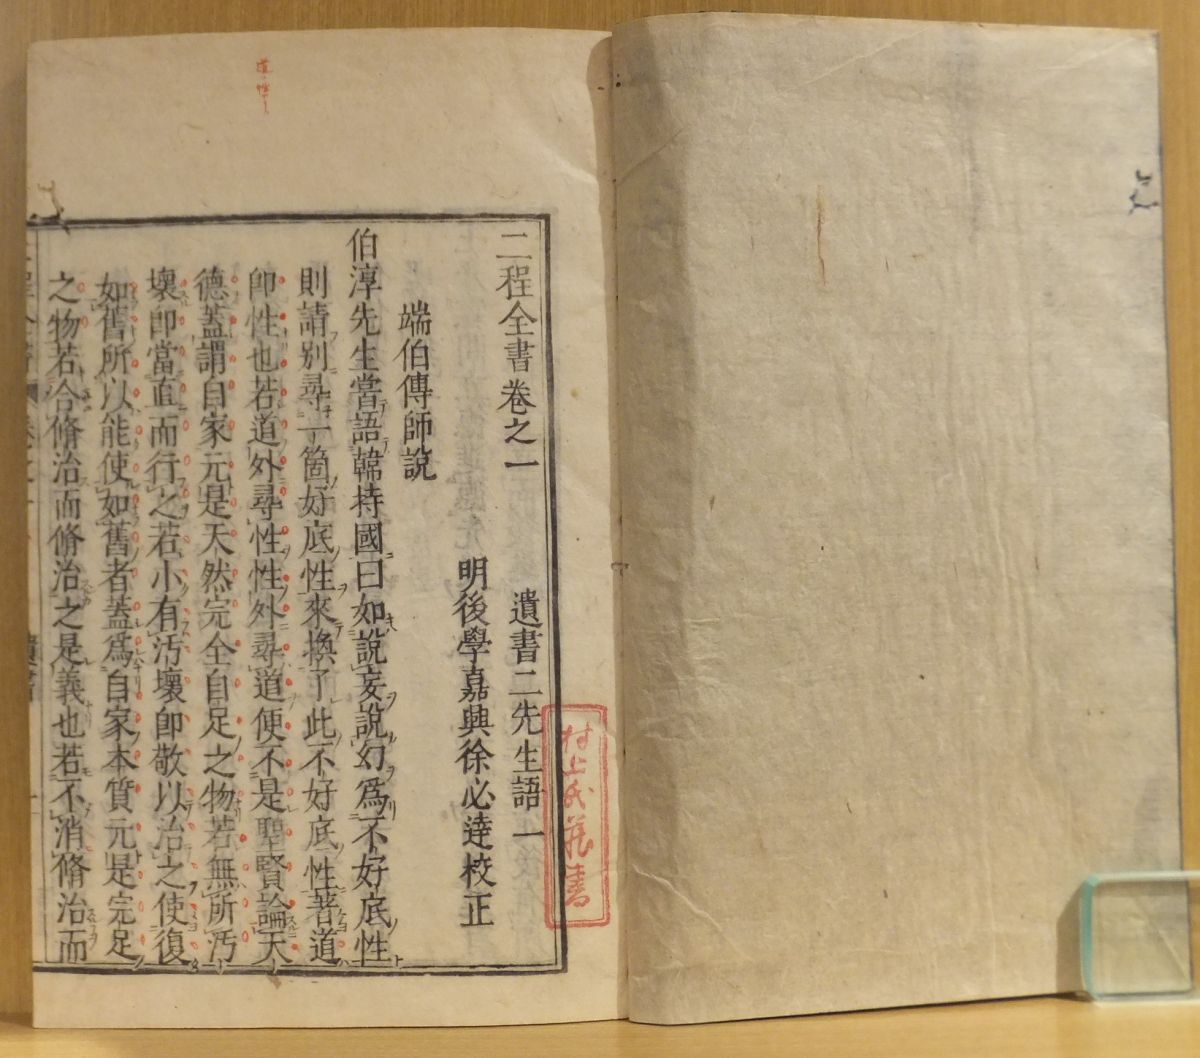 二程全書卷之一
遺書二先生語一
明後學嘉興徐必達校正
端伯傳師說
伯淳先生嘗語韓持國曰如說妄說幻爲不好底性
則請别尋一箇好底性來換了此不好底性著道
卽性也若道外尋性性外尋道便不是聖賢論天
德蓋謂自家元是天然完全自足之物若無所汚
壞卽當直而行之若小有汚壞卽敬以治之使復
如舊所以能使如舊者蓋爲自家本質元是完足
之物若合脩治而脩治之是義也若不消脩治而
村上氏藏書
道性